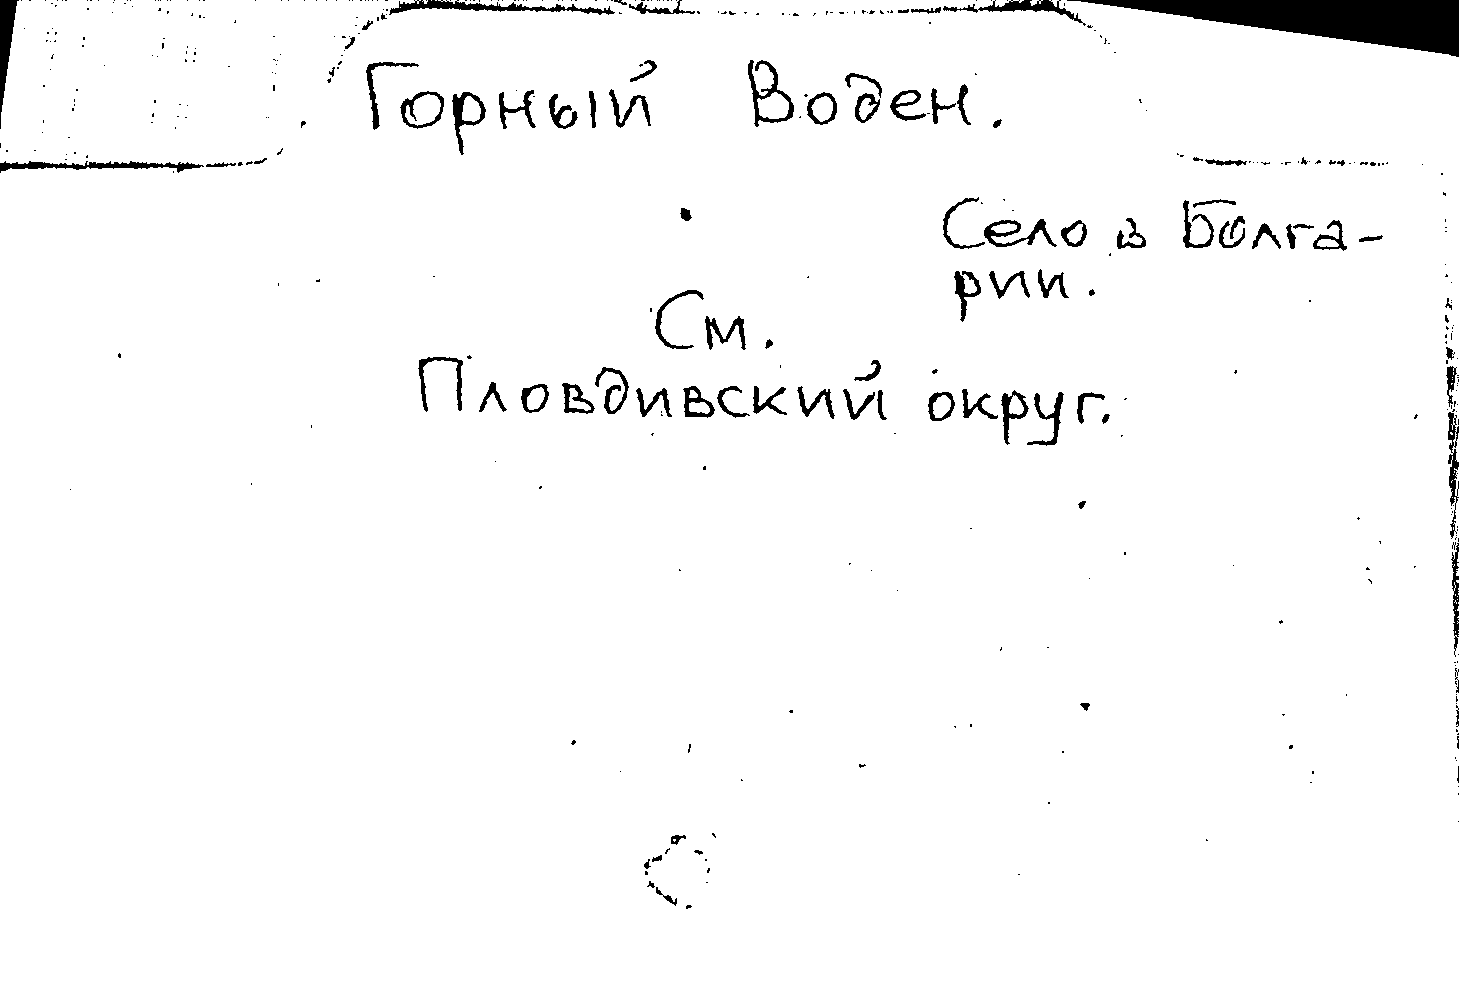 Горный Воден.
Село в Болга-
рии.
См.
Пловдивский округ.